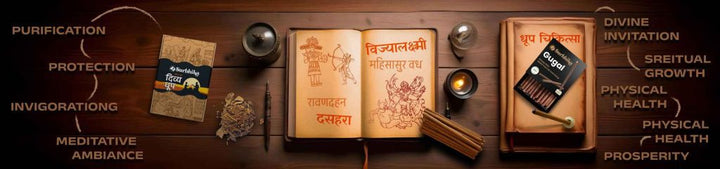 PURIFICATION
PROTECTION
INVIGORATIONG
MEDITATIVE
AMBIANCE
Surbhika
दिव्य
धूप
रावणदहन
दसहरा
विज्यालक्ष्मी
महिसासुर वध
धूप चिकित्सा
Surbhika
Gugal
DIVINE
INVITATION
SREITUAL
GROWTH
PHYSICAL
HEALTH
PHYSICAL
HEALTH
PROSPERITY